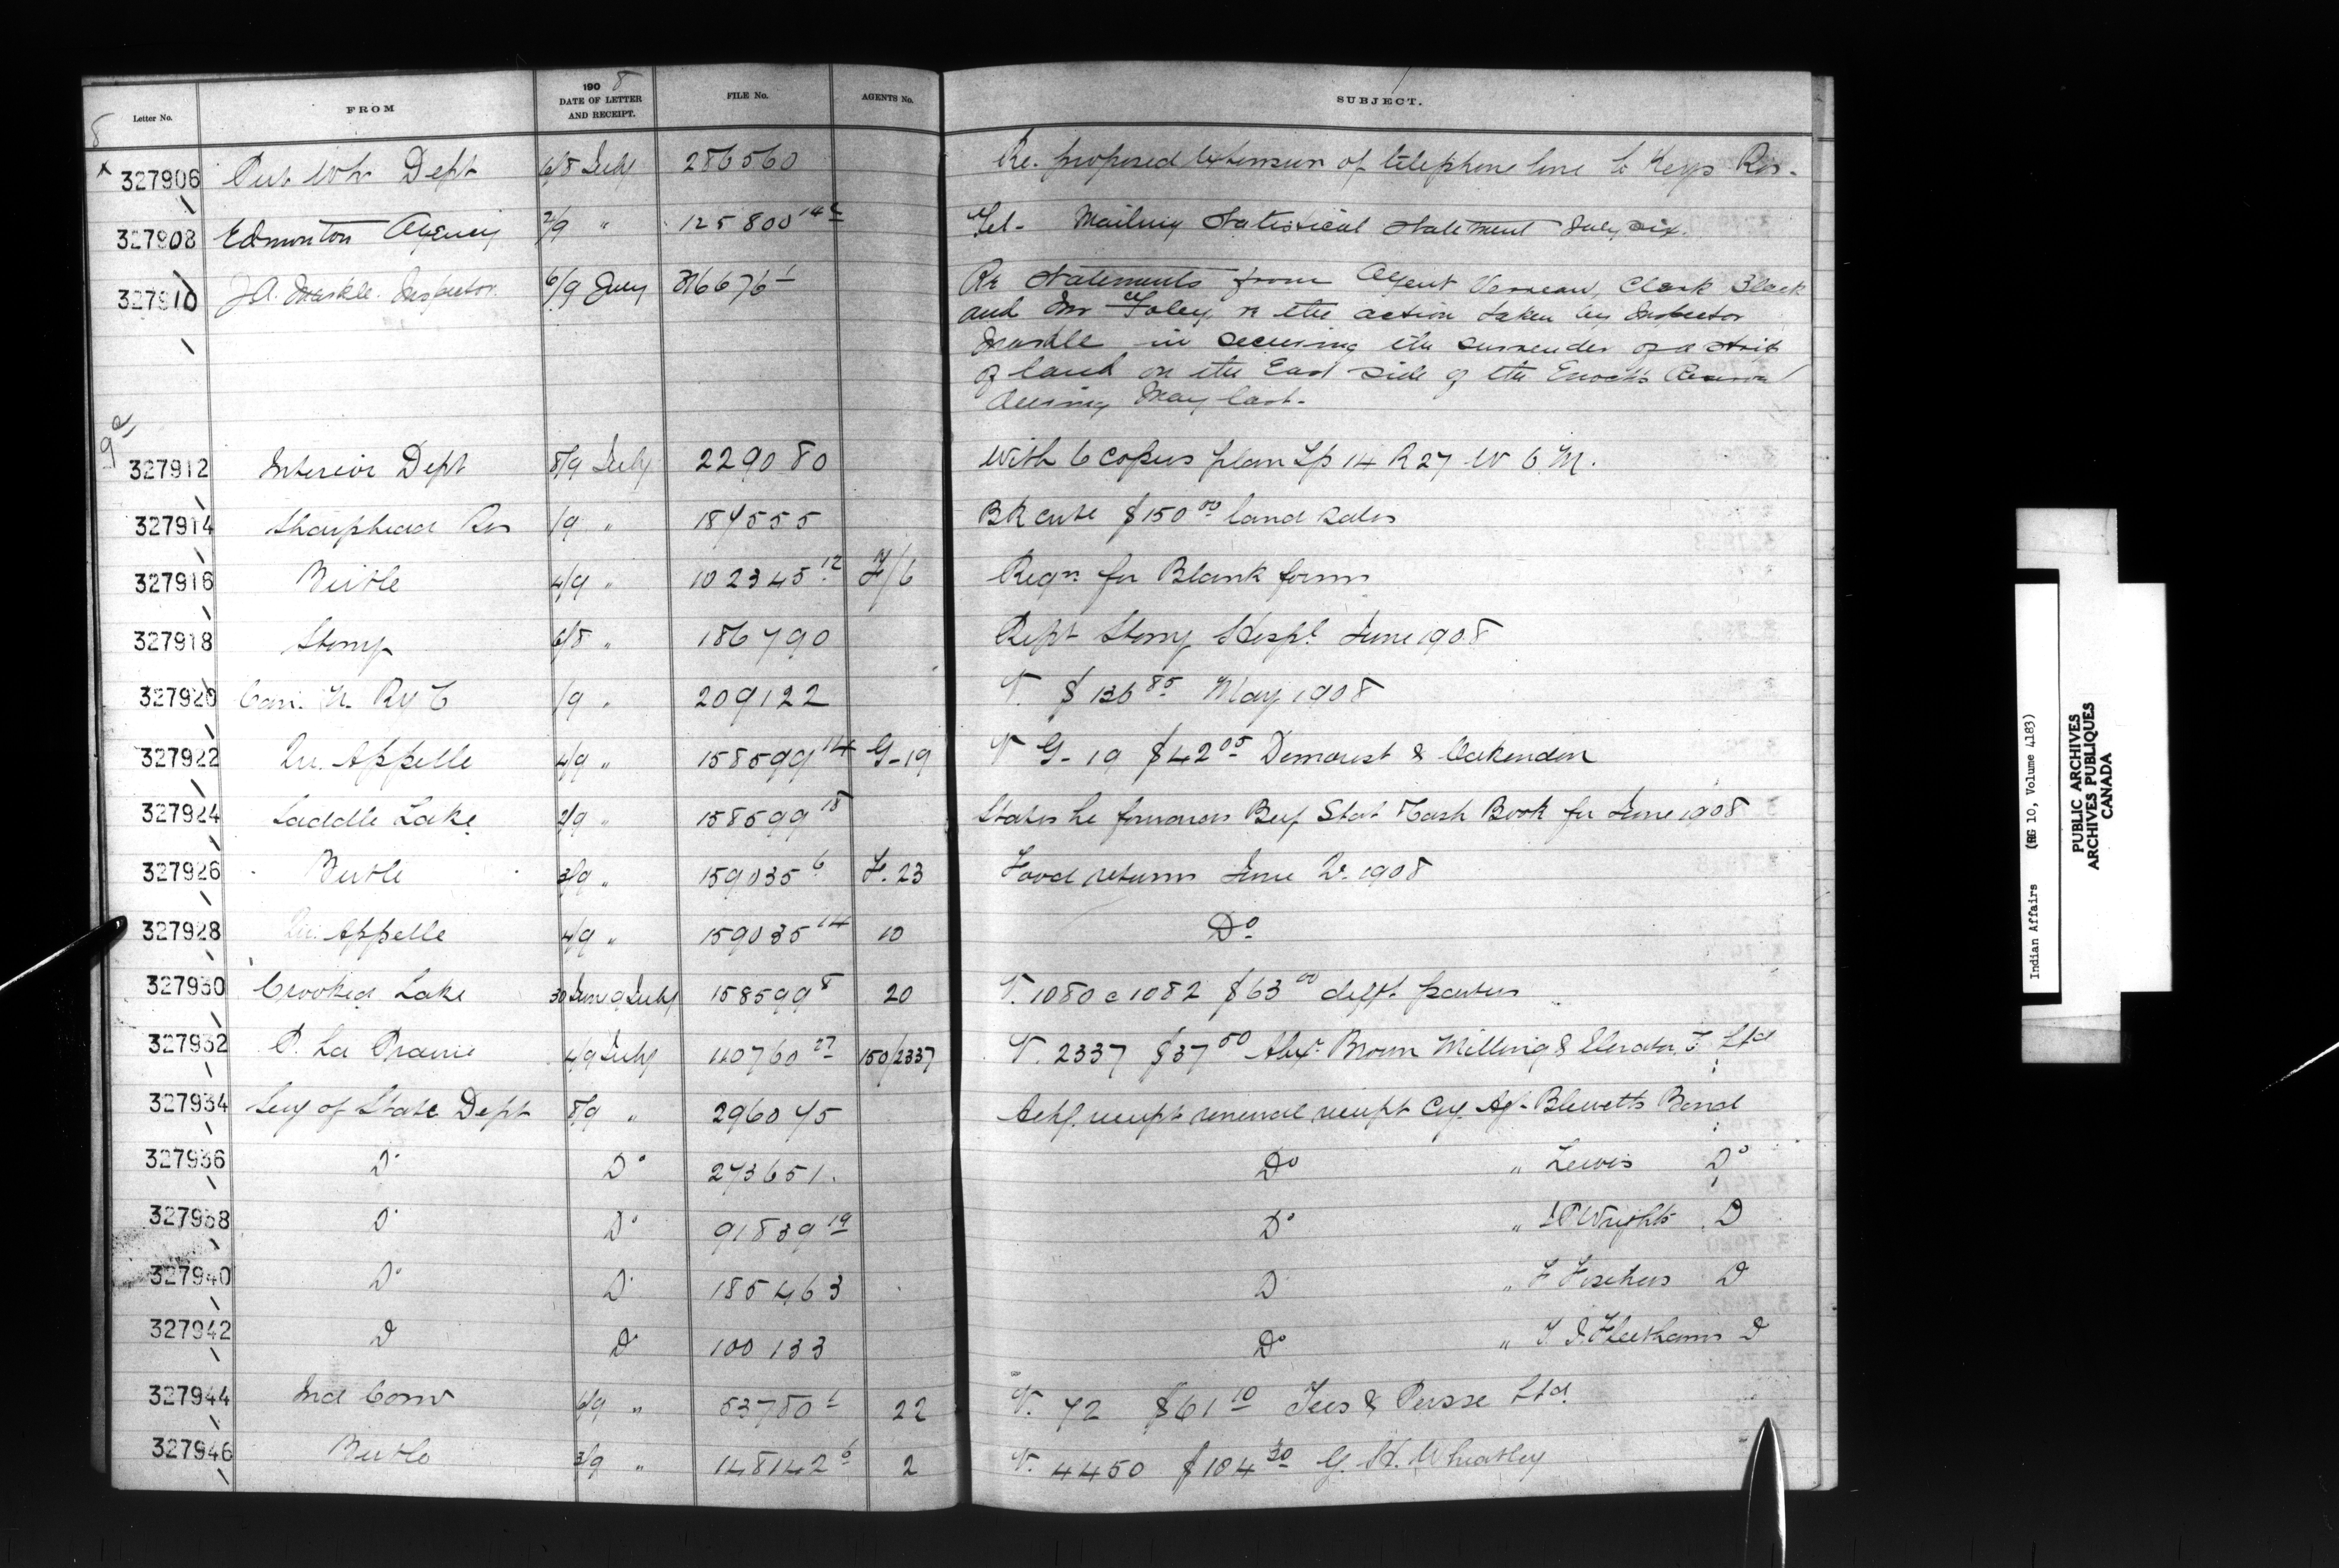 Letter No. FROM 1908 DATE OF LETTER AND RECEIPT. FILE No. AGENTS No. SUBJECT.
8
x 327906 Pub Wks Dept 6/8 July 286560 Re. proposed extension of telephone line to Keys Res.
327908 Edmonton Agency 2/9 " 125800 14 Tel- Mailing Statistical Statement July six.
327910 J.A. Markle. Inspector. 6/9 July 316676 1 Re Statements from Agent Verreau, Clerk Black
and Mr Foley, re the action taken by Inspector
Markle in securing the surrender of a strip
of land on the East side of the Enoch's Reserve
during May last.
9
327912 Interior Dept 8/9 July 229080 With 6 copies plan Tp 14 R 27 W 6 M.
327914 Sharphead Res /9 " 187555 BR $150 00 land sales
327916 Birtle 4/9 " 102345 12 F/6 Reqn for Blank forms
327918 Stony 6/8 " 186790 Rept Stony Hospl June 1908
327920 Can. N. Ry C /9 " 209122 V. $136 85 May 1908
327922 Qu. Appelle 4/9 " 158599 14 G-19 V G-19 $42 05 Demarest & Oakenden
327924 Saddle Lake 2/9 " 158599 18 States he forwards Beef Stat & Cash Book for June 1908
327926 Birtle 3/9 " 159035 6 F. 23 Food returns June Qr. 1908
327928 Qu. Appelle 4/9 " 159035 14 10 Do
327930 Crooked Lake 30 June 9 July 158599 8 20 V. 1080 a 1082 $63 00 difft. parties
327932 P. La Prairie 4/9 July 140760 27 150/2337 V. 2337 $37 50 Alex. Brown Milling & Elevator C Ltd
327934 Secy of State Dept 8/9 " 296045 Ackg. receipt renewal receipt Agt Blewetts Bond
327936 Do Do 273651. Do " Lewis Do
327938 Do Do 91839 19 Do " Wrights D
327940 Do D 185463 D " F Fischers D
327942 D D 100133 Do " Fleethams D
327944 Ind Comr 6/9 " 53780 1 22 V. 72 $61 10 Tees & Persse Ltd.
327946 Birtle 3/9 " 148142 6 2 V. 4450 $104 30 G. H. Wheatley
Indian Affairs (RG 10, Volume 4183)
PUBLIC ARCHIVES
ARCHIVES PUBLIQUES
CANADA